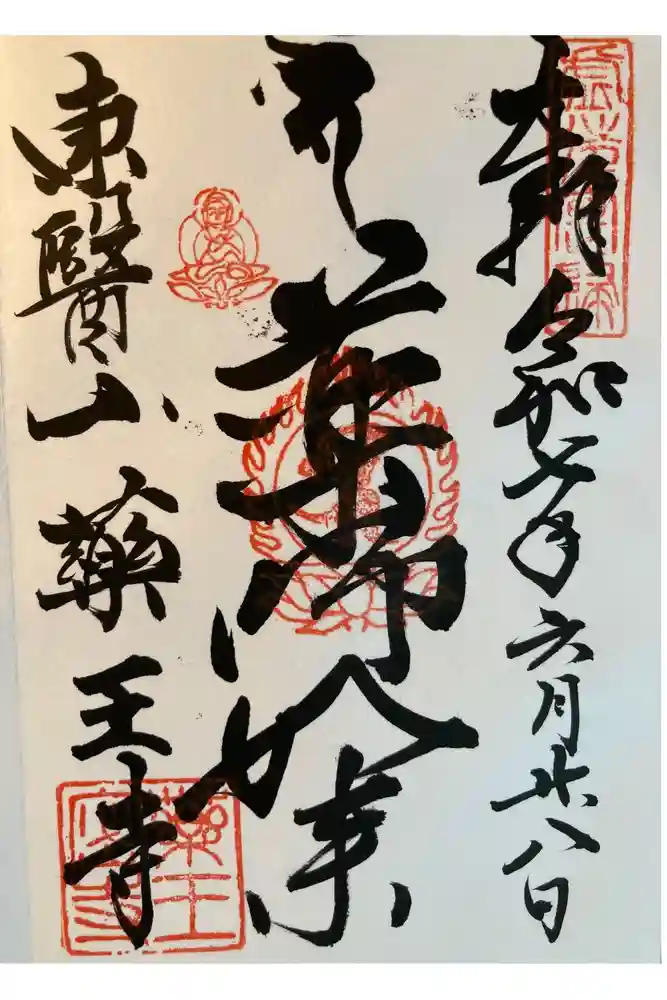 奉拝
令和七年六月廿八日
薬師如来
東醫山
藥王寺
薬王寺